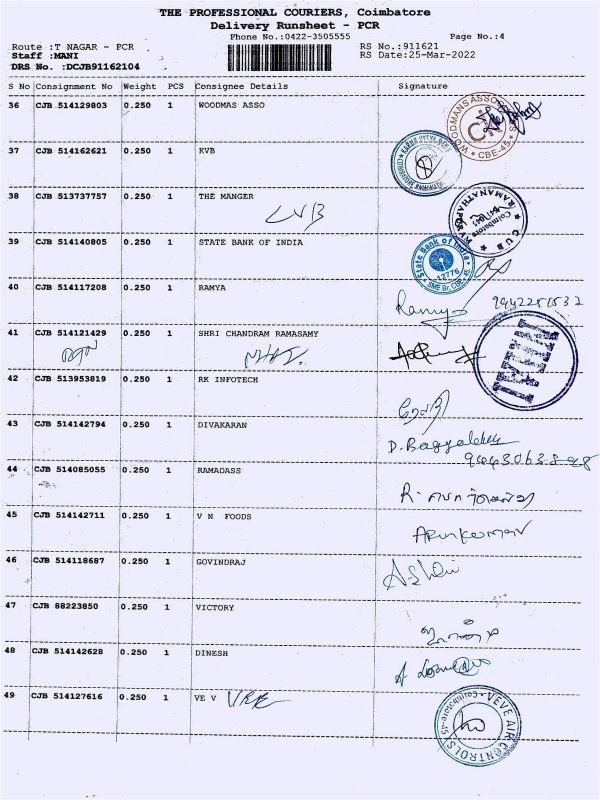 THE PROFESSIONAL COURIERS, Coimbatore
Delivery Runsheet - PCR
Phone No.:0422-3505555 Page No.:4
Route :T NAGAR - PCR RS No.:911621
Staff :MANI RS Date:25-Mar-2022
DRS No. :DCJB91162104
S No Consignment No Weight PCS Consignee Details Signature
36 CJB 514129803 0.250 1 WOODMAS ASSO
WOODMANS ASSOCIATES CBE-45
37 CJB 514162621 0.250 1 KVB
38 CJB 513737757 0.250 1 THE MANGER
LVB
CUB Coimbatore RAMANATHAPURAM
39 CJB 514140805 0.250 1 STATE BANK OF INDIA
State Bank of India 12776 SME Br, CBE-45
40 CJB 514117208 0.250 1 RAMYA
Ramya
41 CJB 514121429 0.250 1 SHRI CHANDRAM RAMASAMY
42 CJB 513953819 0.250 1 RK INFOTECH
43 CJB 514142794 0.250 1 DIVAKARAN
44 CJB 514085055 0.250 1 RAMADASS
45 CJB 514142711 0.250 1 V N FOODS
Arunkumar
46 CJB 514118687 0.250 1 GOVINDRAJ
47 CJB 88223850 0.250 1 VICTORY
48 CJB 514142628 0.250 1 DINESH
49 CJB 514127616 0.250 1 VE V
VEVE AIR CONTROLS Coimbatore-45